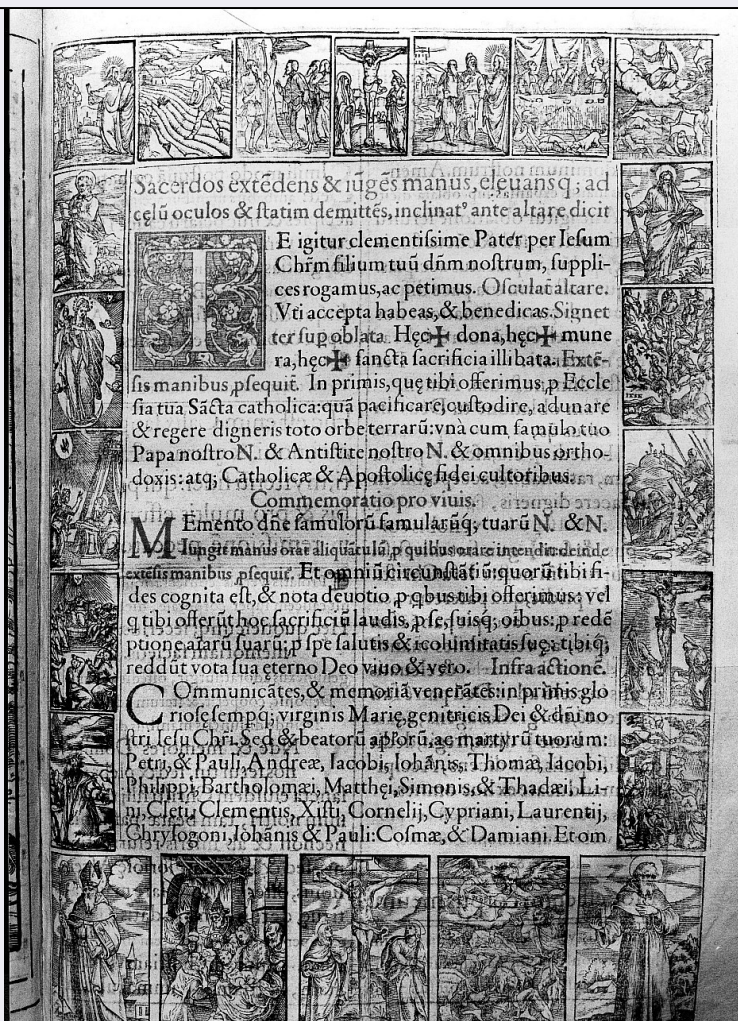 Sacerdos extēdens & iūgēs manus, eleuansq; ad
cęlū oculos & statim demittēs, inclinat' ante altare dicit
TE igitur clementissime Pater per Iesum
Chrm̄ filium tuū dn̄m nostrum, suppli-
ces rogamus, ac petimus. Osculat altare.
Vti accepta habeas, & benedicas. Signet
ter sup oblata. Hęc✠ dona, hęc✠ mune
ra, hęc✠ sancta sacrificia illibata. Extē-
sis manibus ꝓsequit̄. In primis, quę tibi offerimus, p Eccle
sia tua Sācta catholica: quā pacificare, custodire, adunare
& regere digneris toto orbe terrarū: vna cum famulo tuo
Papa nostro N. & Antistite nostro N. & omnibus ortho-
doxis: atq; Catholicæ & Apostolicę fidei cultoribus.
Commemoratio pro viuis.
MEmento dn̄e famulorū famularūq; tuarū N. & N.
Iungit manus orat aliquātulū, p quibus orare intendit: deinde
extēsis manibus ꝓsequit̄. Et omniū circunstātiū: quorū tibi fi-
des cognita est, & nota deuotio, p qbus tibi offerimus: vel
q tibi offerūt hoc sacrificiū laudis, p se, suisq; oībus: p redē
ptione aīarū suarū: p spe salutis & īcolumitatis suę: tibiq;
reddūt vota sua ęterno Deo viuo & vero. Infra actionē.
COmmunicātes, & memoriā venerātes: in primis glo
riosę semp̄q; virginis Marię, genitricis Dei & dn̄i no
stri Iesu Chri. Sed & beatorū aplorū, ac martyrū tuorum:
Petri, & Pauli, Andreæ, Iacobi, Iohānis, Thomæ, Iacobi,
Philippi, Bartholomæi, Matthęi, Simonis, & Thadæi, Li-
ni, Cleti, Clementis, Xisti, Cornelij, Cypriani, Laurentij,
Chrysogoni, Iohānis & Pauli: Cosmæ, & Damiani. Et om